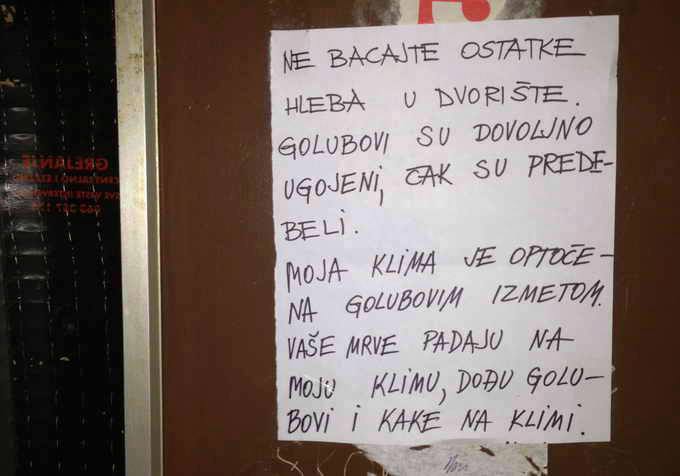 NE BACAJTE OSTATKE
HLEBA U DVORIŠTE.
GOLUBOVI SU DOVOLJNO
UGOJENI, ČAK SU PREDE-
BELI.
MOJA KLIMA JE OPTOČE-
NA GOLUBOVIM IZMETOM.
VAŠE MRVE PADAJU NA
MOJU KLIMU, DOĐU GOLU-
BOVI I KAKE NA KLIMI.
GREJANJE
CENTRALNO I